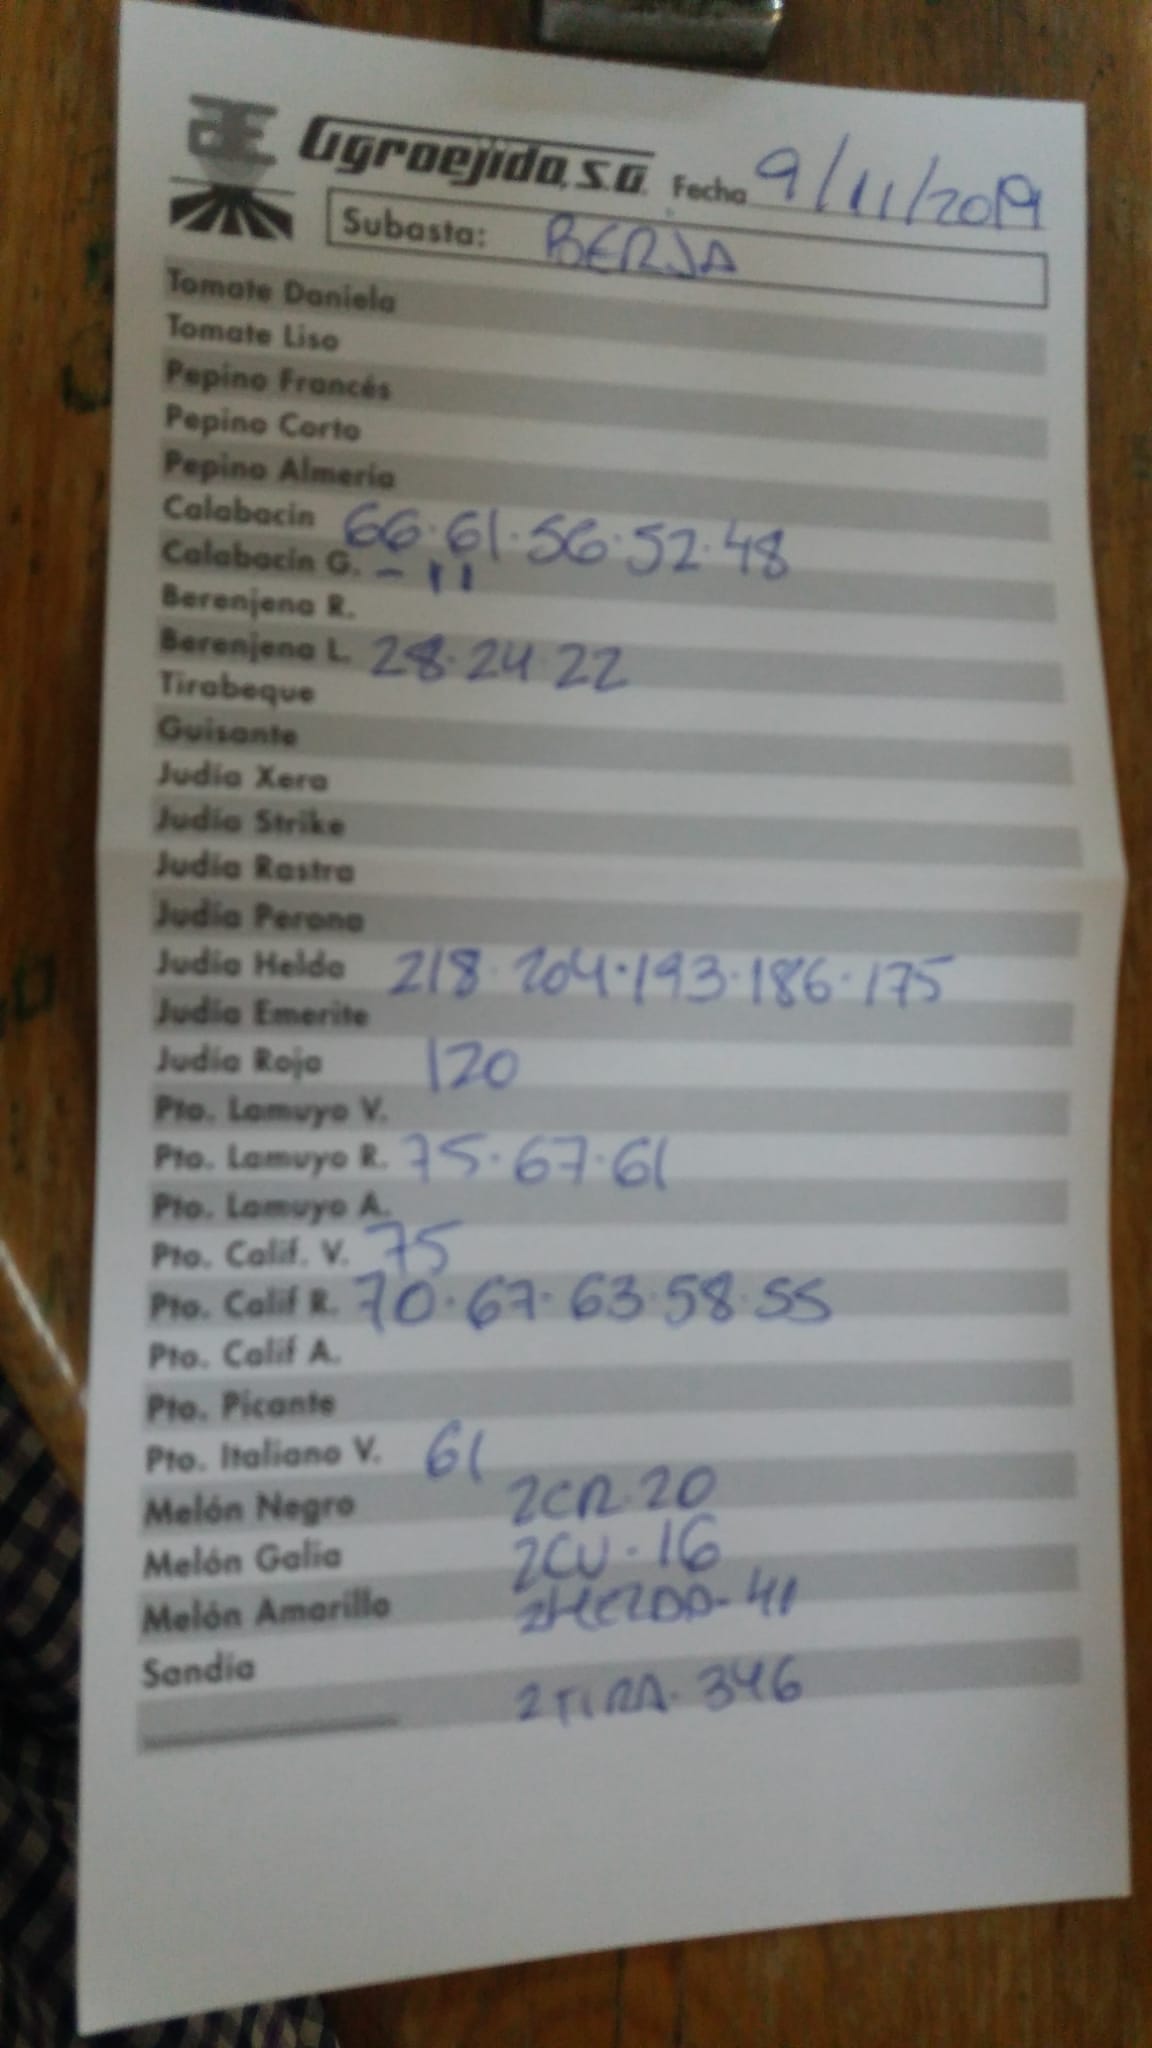 Agroejido, S.A. Fecha 9/11/2019
Subasta: BERJA
Tomate Daniela
Tomate Liso
Pepino Francés
Pepino Corto
Pepino Almería
Calabacin 66·61·56·52·48
Calabacin G. - 11
Berenjena R.
Berenjena L. 28·24·22
Tirabeque
Guisante
Judía Xera
Judía Strike
Judía Rastra
Judía Perona
Judía Helda 218·204·193·186·175
Judía Emerite
Judía Roja 120
Pto. Lamuyo V.
Pto. Lamuyo R. 75·67·61
Pto. Lamuyo A.
Pto. Calif. V. 75
Pto. Calif R. 70·67·63·58·55
Pto. Calif A.
Pto. Picante
Pto. Italiano V. 61
Melón Negro 2CR·20
Melón Galia 2CU·16
Melón Amarillo 41
Sandía
2TIRA·346